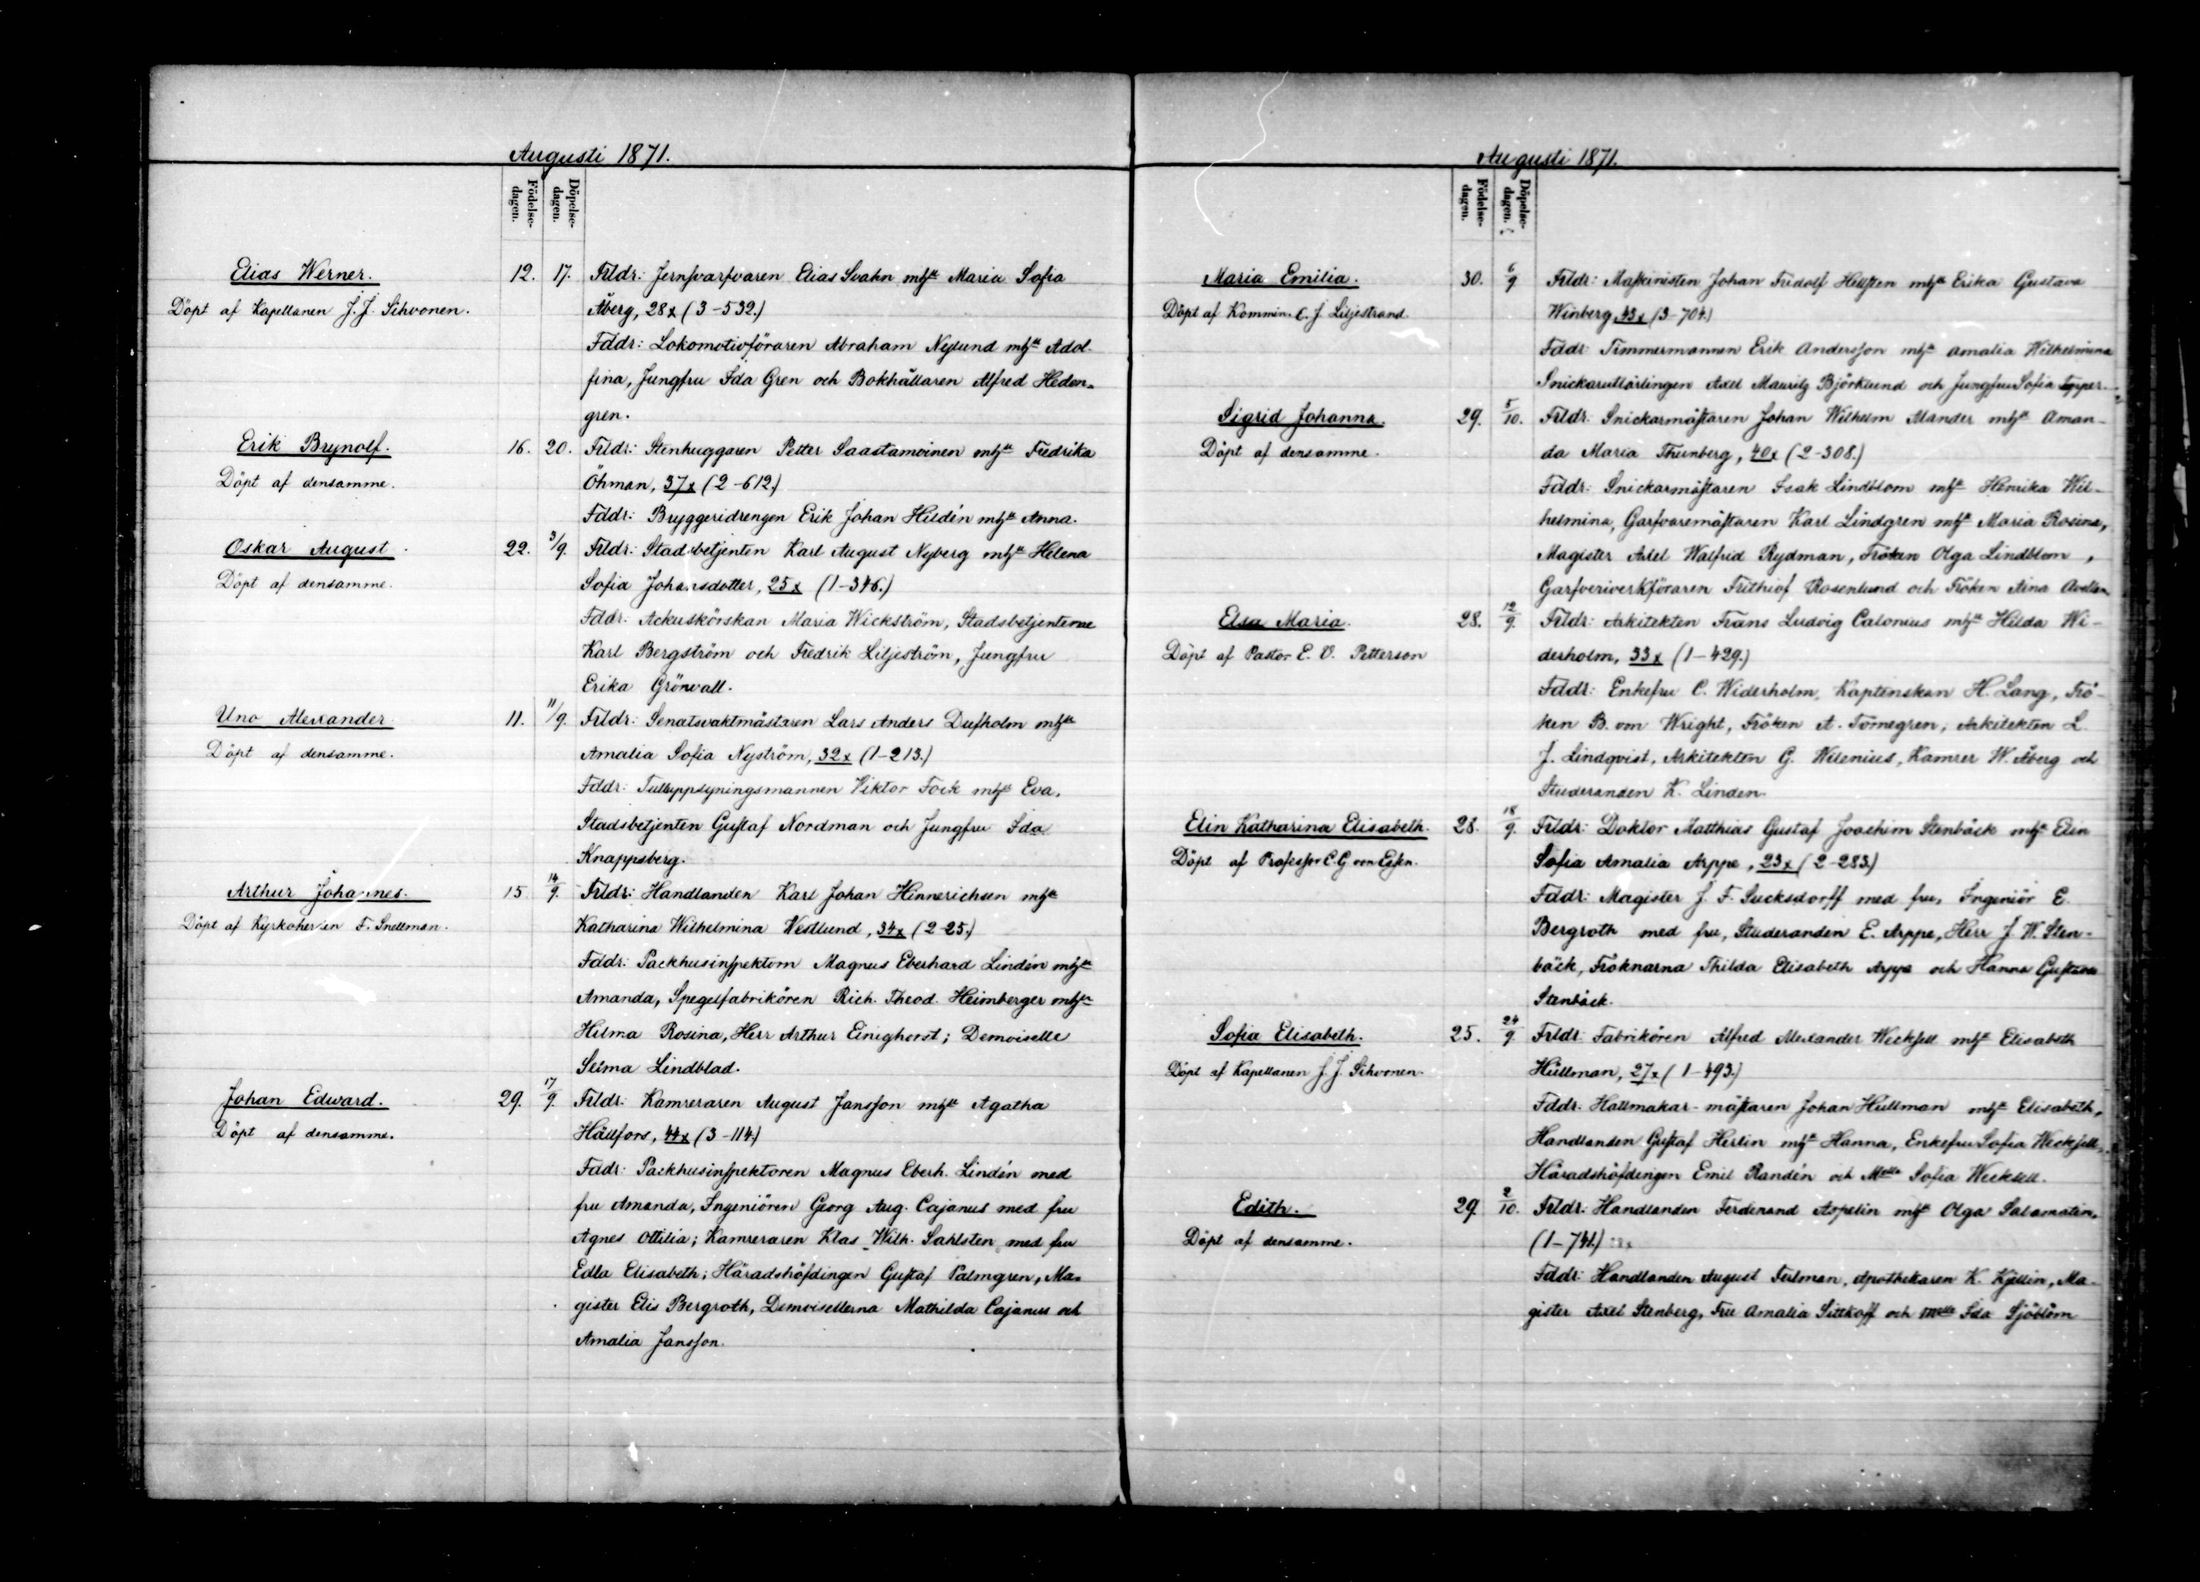 Augusti 1871.
Födelse-
dagen.
Döpelse-
dagen.
Elias Werner.
Döpt af Kapellanen J. J. Sihvonen.
12. 17. Frldr: Jernsvarfvaren Elias Svahn mhst Maria Sofia
Åberg, 28x (3-532.)
Fddr: Lokomotivföraren Abraham Nylund mhst Adol-
fina, Jungfru Ida Gren och Bokhållaren Alfred Heden-
gren.
Erik Brynolf.
Döpt af densamme.
16. 20. Frldr: Stenhuggaren Petter Saastamoinen mhst Fredrika
Öhman, 37x (2-612.)
Fddr: Bryggeridrengen Erik Johan Hildén mhst Anna.
Oskar August.
Döpt af densamme.
22. 3/9. Frldr: Stadsbetjenten Karl August Nyberg mhst Helena
Sofia Johansdotter, 25x (1-346.)
Fddr: Ackuskörskan Maria Wickström, Stadsbetjenterne
Karl Bergström och Fredrik Liljeström, Jungfru
Erika Grönvall.
Uno Alexander.
Döpt af densamme.
11. 11/9. Frldr: Senatsvaktmästaren Lars Anders Dufholm mhst
Amalia Sofia Nyström, 32x (1-213.)
Fddr: Tulluppsyningsmannen Viktor Fock mhst Eva,
Stadsbetjenten Gustaf Nordman och Jungfru Ida
Knappsberg.
Arthur Johannes.
Döpt af Kyrkoherden F. Snellman.
15. 14/9. Frldr: Handlanden Karl Johan Hinnerichsen mhst
Katharina Wilhelmina Westlund, 34x (2-25.)
Fddr: Packhusinspektorn Magnus Eberhard Lindén mhst
Amanda, Spegelfabrikören Rich. Theod. Heimberger mhst
Hilma Rosina, Herr Arthur Einighorst; Demoiselle
Selma Lindblad.
Johan Edward.
Döpt af densamme.
29. 17/9. Frldr: Kamreraren August Jansson mhst Agatha
Hällfors, 44x (3-114.)
Fddr: Packhusinspektoren Magnus Eberh. Lindén med
fru Amanda, Ingeniören Georg Aug. Cajanus med fru
Agnes Ottilia; Kamreraren Klas Wilh. Sahlsten med fru
Edla Elisabeth; Häradshöfdingen Gustaf Palmgren, Ma-
gister Elis Bergroth, Demoisellerna Mathilda Cajanus och
Amalia Jansson.
Augusti 1871.
Födelse-
dagen.
Döpelse-
dagen.
Maria Emilia.
Döpt af Kommin. C. J. Liljestrand.
30. 6/9 Frldr: Maskinisten Johan Fridolf Hellsten mhst Erika Gustava
Winberg 43x (3-704.)
Fddr: Timmermannen Erik Andersson mhst Amalia Wilhelmina
Snickarutlärlingen Axel Mauritz Björklund och Jungfru Sofia
Sigrid Johanna.
Döpt af densamme.
29. 5/10. Frldr: Snickarmästaren Johan Wilhelm Mander mhst Aman-
da Maria Thunberg, 40x (2-308.)
Fddr: Snickarmästaren Isak Lindblom mhst Henrika Wil-
helmina, Garfvaremästaren Karl Lindgren mhst Maria Rosina,
Magister Axel Walfrid Rydman, Fröken Olga Lindblom,
Garfveriverkföraren Frithiof Rosenlund och Fröken Aina
Elsa Maria.
Döpt af Pastor E. V. Petterson
28. 12/9. Frldr: Arkitekten Frans Ludvig Calonius mhst Hilda Wi-
derholm, 33x (1-429.)
Fddr: Enkefru C. Widerholm, Kaptenskan H. Lang, Frö-
ken B. von Wright, Fröken A. Törnegren, Arkitekten L.
J. Lindqvist, Arkitekten G. Wilenius, Kamrer W. Åberg och
Studeranden K. Linden.
Elin Katharina Elisabeth.
Döpt af Professor C. G. von Essen.
28. 18/9. Frldr: Doktor Matthias Gustaf Joachim Stenbäck mhst Elin
Sofia Amalia Arppe, 23x (2-283.)
Fddr: Magister J. F. Sucksdorff med fru, Ingeniör E.
Bergroth med fru, Studeranden E. Arppe, Herr J. W. Sten-
bäck, Fröknarna Thilda Elisabeth Arppe och Hanna Gustava
Stenbäck.
Sofia Elisabeth.
Döpt af Kapellanen J. J. Sihvonen.
25. 24/9 Frldr: Fabrikören Alfred Alexander Wecksell mhst Elisabeth
Hullman, 27x (1-493.)
Fddr. Hattmakar-mästaren Johan Hullman mhst Elisabeth,
Handlanden Gustaf Herlin mhst Hanna, Enkefru Sofia Wecksell,
Häradshöfdingen Emil Randén och Mlle Sofia Wecksell.
Edith.
Döpt af densamme.
29 2/10. Frldr: Handlanden Ferdinand Aspelin mhst Olga Salamatin,
(1-741.)
Fddr: Handlanden August Feilman, Apothekaren K. Kjellin, Ma-
gister Axel Stenberg, Fru Amalia Sittkoff och Mlle Ida Sjöblom